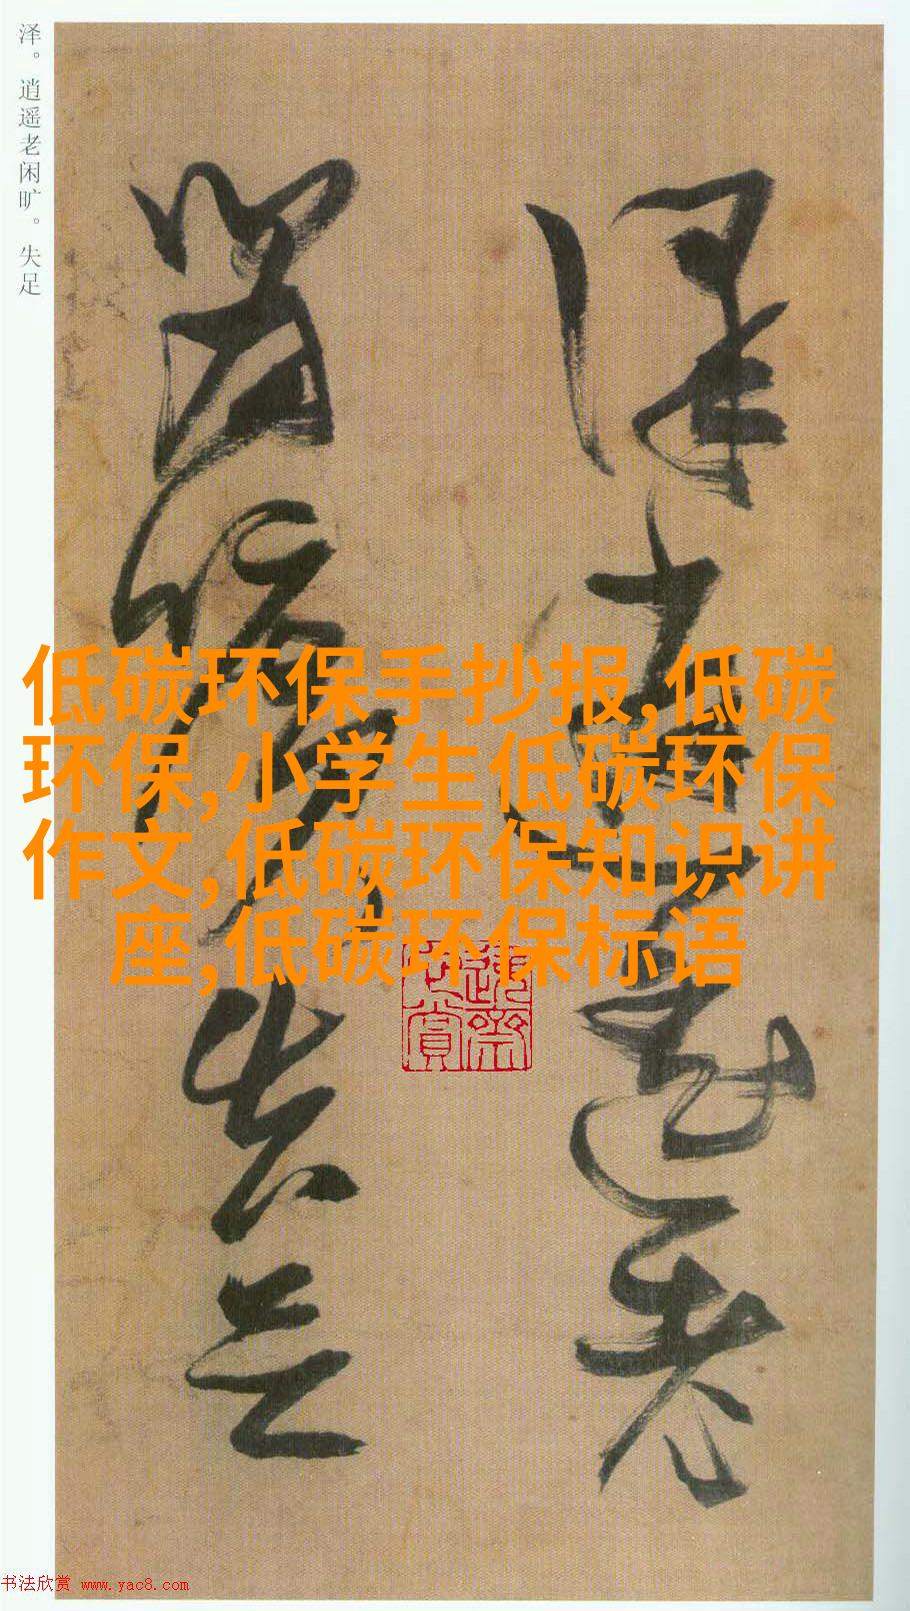 泽。逍遥老闲旷。失足
澤逍遙老
閒曠失足
低碳环保手抄报,低碳
环保,小学生低碳环保
作文,低碳环保知识讲
座,低碳环保标语
书法欣赏 www.yac8.com